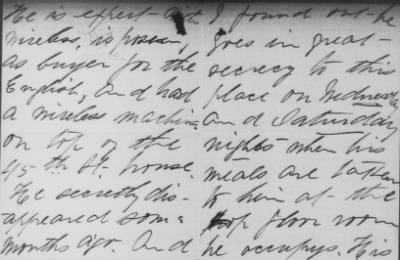 He is expert with
wireless, is posen,
as buyer for the
English, and had
a wireless machine
on top of the
45th St. house
He secretly dis-
appeared some
months ago. And
I found out he
goes in great
secrecy to this
place on Wednesday
and Saturday
nights when his
meals are taken
to him at the
top floor room
he occupys. His